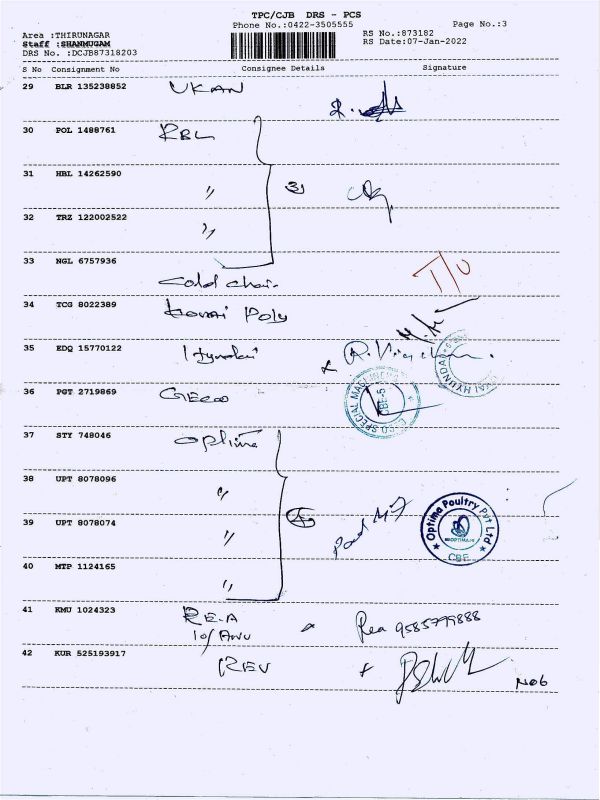 TPC/CJB DRS - PCS
Phone No.:0422-3505555
Page No.:3
Area :THIRUNAGAR
Staff :SHANMUGAM
DRS No. :DCJB87318203
RS No.:873182
RS Date:07-Jan-2022
S No Consignment No Consignee Details Signature
29 BLR 135238852 UKAN
30 POL 1488761 RBL
31 HBL 14262590 〃 3)
32 TRZ 122002522 〃
33 NGL 6757936 Cold chain T/O
34 TCG 8022389 Poly
35 EDQ 15770122 Hyundai
HYUNDAI
36 PGT 2719869 Gecoo
SPECIAL MACHINES CBE-5
37 STY 748046 optima
38 UPT 8078096 〃
39 UPT 8078074 〃 4
Optima Poultry Pvt Ltd
OPTIMA
CBE
40 MTP 1124165 〃
41 KMU 1024323 RE-A Rea 9585799888
10/ANU
42 KUR 525193917 REV